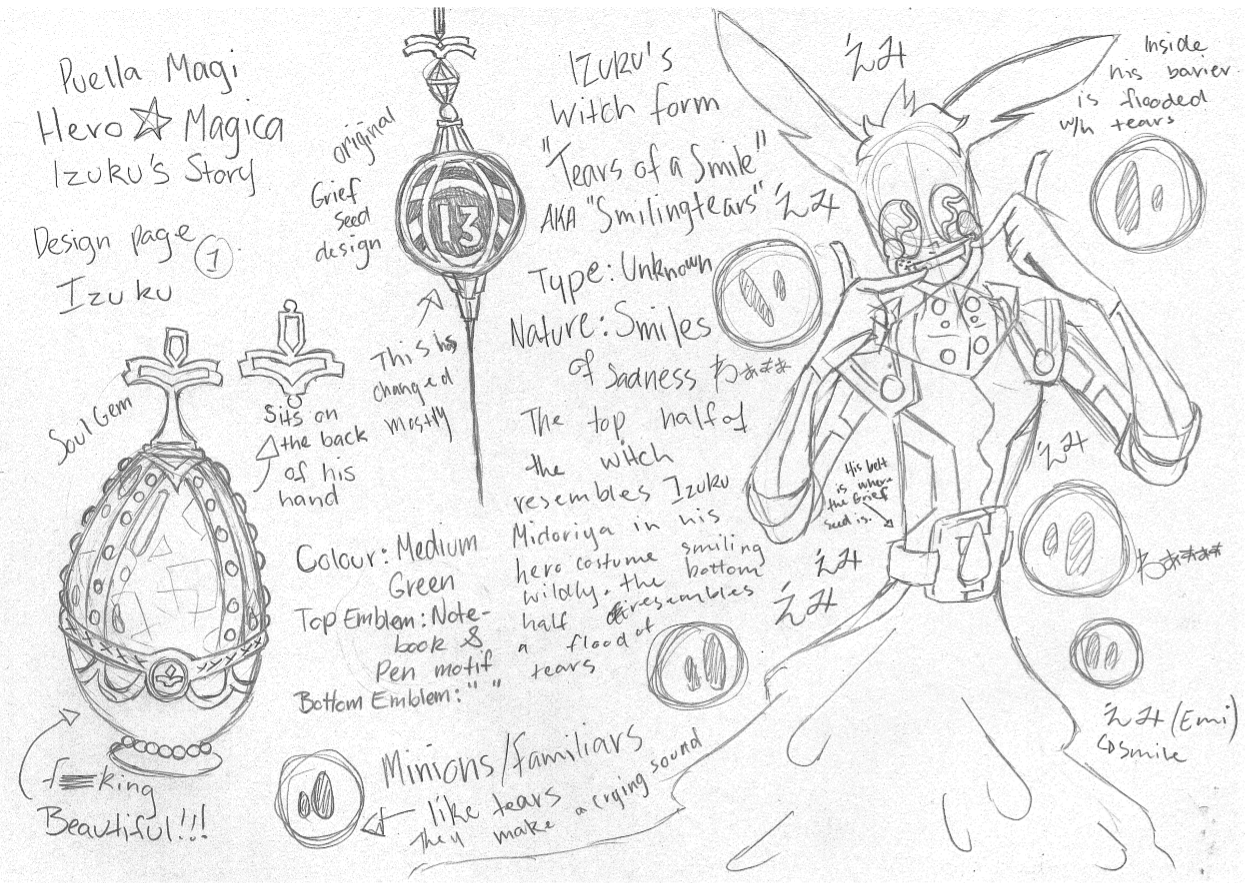 Puella Magi
Hero ☆ Magica
Izuku's Story
Design page 1
Izuku
Soul Gem
Sits on
the back
of his
hand
f king
Beautiful!!!
original
Grief
seed
design
13
This has
changed
mostly
Colour: Medium
Green
Top Emblem: Note-
book &
Pen motif
Bottom Emblem: " "
Izuku's
Witch form
"Tears of a Smile"
AKA "Smilingtears"
Type: Unknown
Nature: Smiles
of Sadness
The top half of
the witch
resembles Izuku
Midoriya in his
hero costume smiling
wildly. the bottom
half resembles
a flood of
tears
Minions/familiars
like tears
They make a crying sound
えみ
えみ
えみ
えみ
えみ
Inside
his barier
is flooded
w/h tears
His belt
is where
the Grief
seed is.
えみ (Emi)
smile